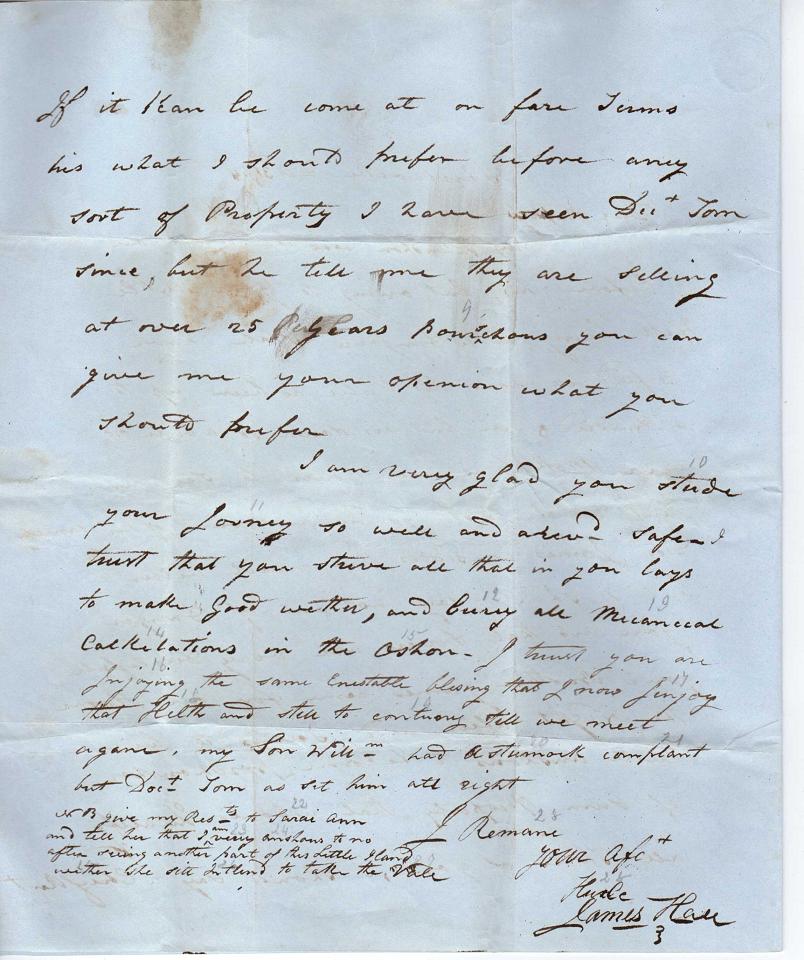 If it Kan be come at on fare Terms
his what I should prefer before aney
sort of Property I have seen Doct Tom
since, but he tell me they are selling
at over 25 years you can
give me your openion what you
should prefer
I am very glad you 10
your Jorney 11 so well and arivd safe I
trust that you strive all that in you lays
to make Good wether, and burey 12 all Mecanecal 13
Calkelations 14 in the Oshon 15 - I trust you are
Injoying 16 the same Enestable blesing that I now Injoy 17
that Helth and still to contuney till we meet
agane, my Son Willm had a stumack complant 21
but Doct Tom as set him all right
NB give my Res-ts to Sarai Ann 22
and tell her that I am very anshous to no
after seeing another part of this Little Iland
wether she still Intend to take the Vale
I Remane 28
your Afct
Huncle
James Hall
3